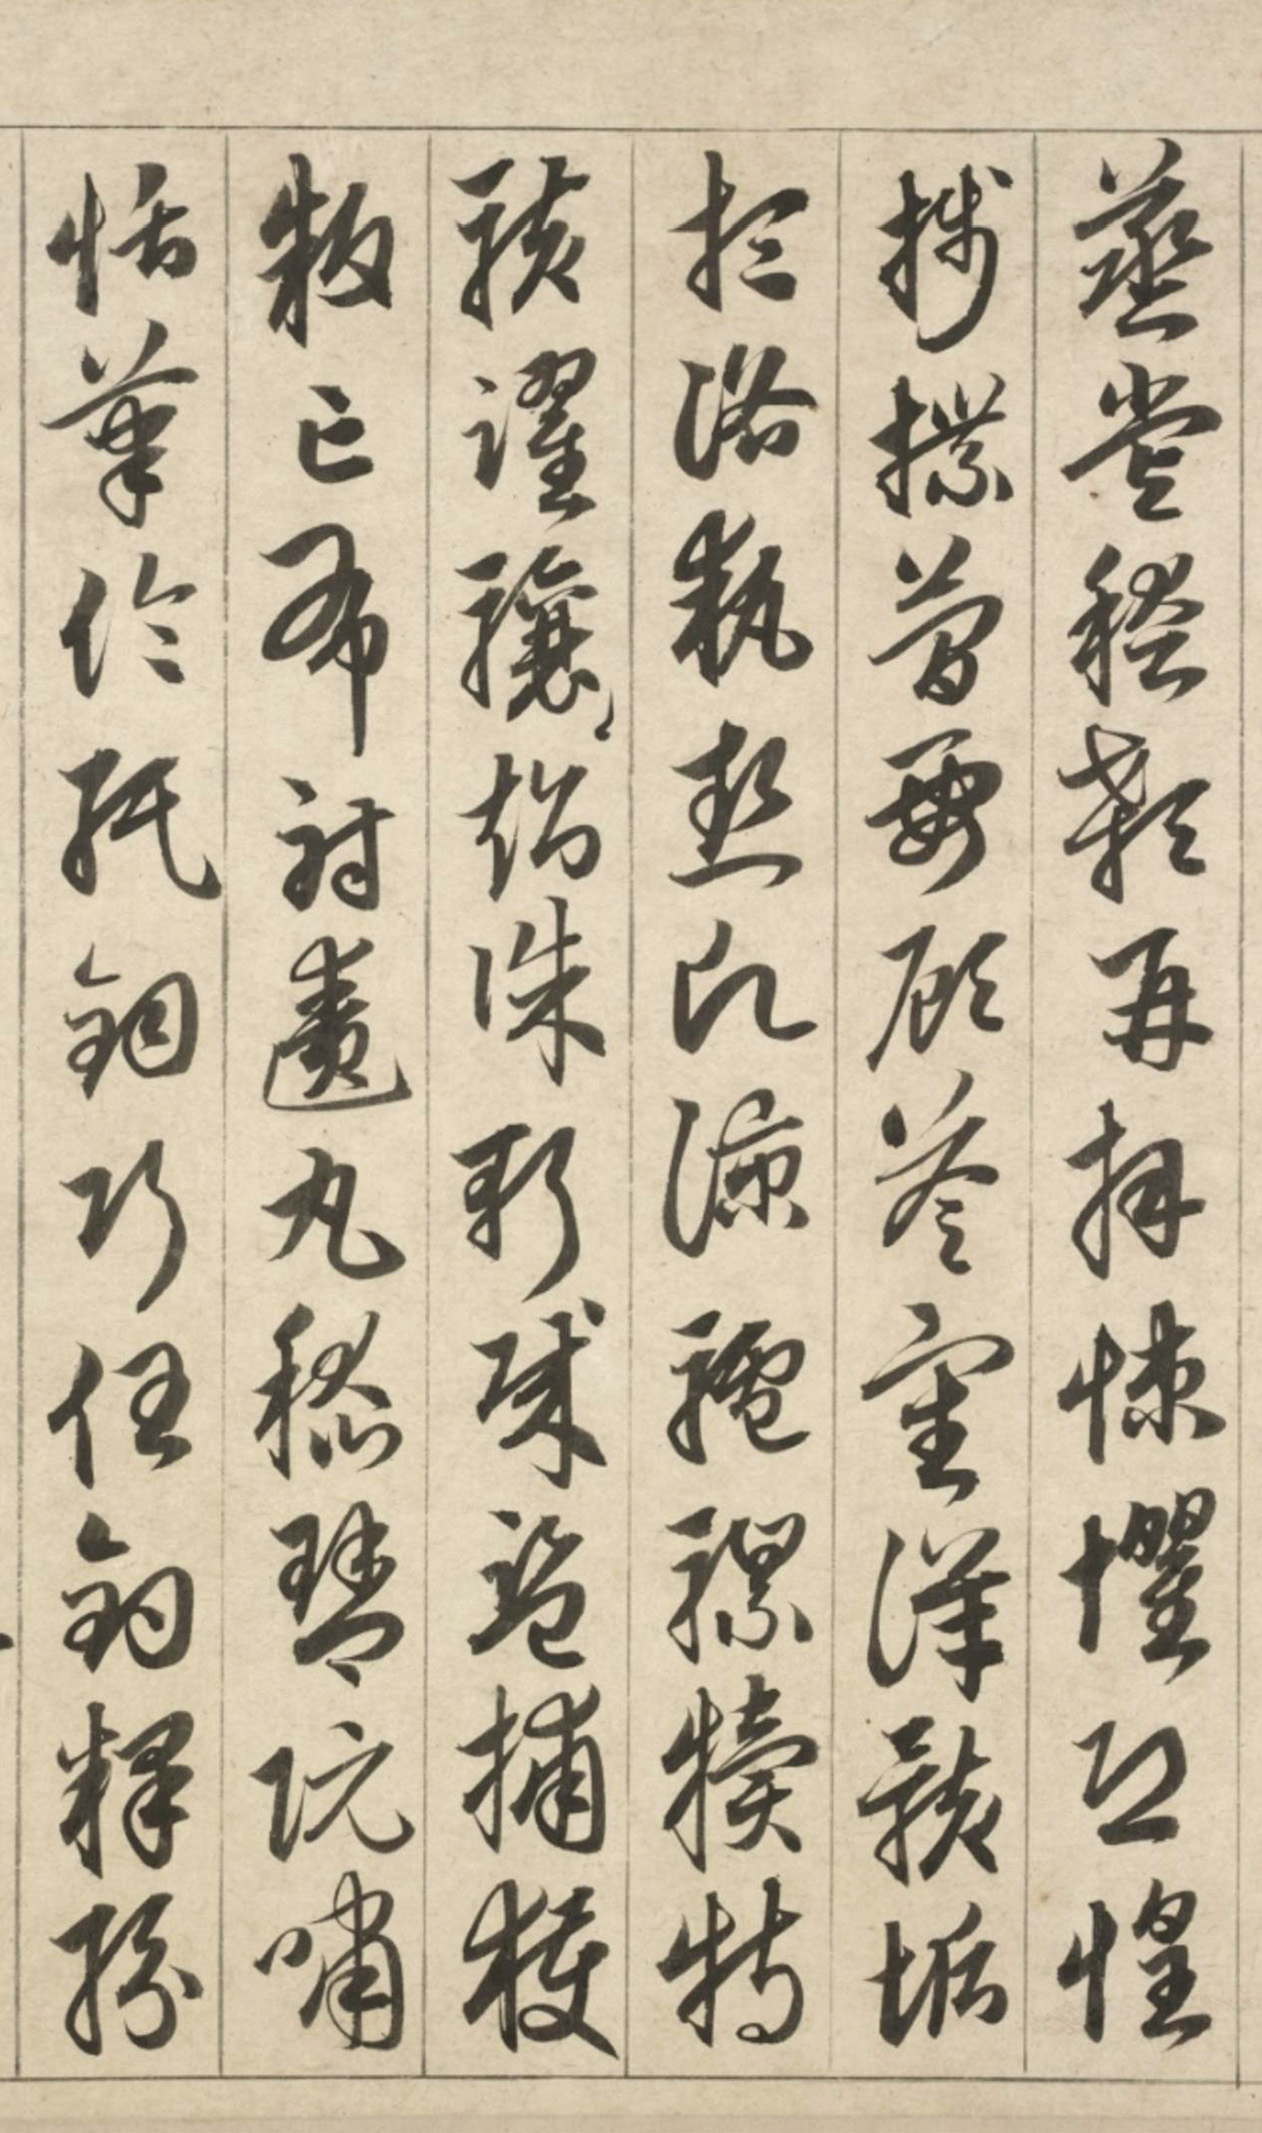 蒸嘗稽顙再拜悚懼恐惶
牋牒簡要顧答審詳骸垢
想浴執熱願涼驢騾犢特
駭躍驤超誅斬賊盜捕獲
叛亡布射遼丸嵇琴阮嘯
恬筆倫紙鈞巧任釣釋紛